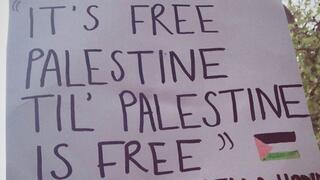 "IT'S FREE
PALESTINE
TIL' PALESTINE
IS FREE"